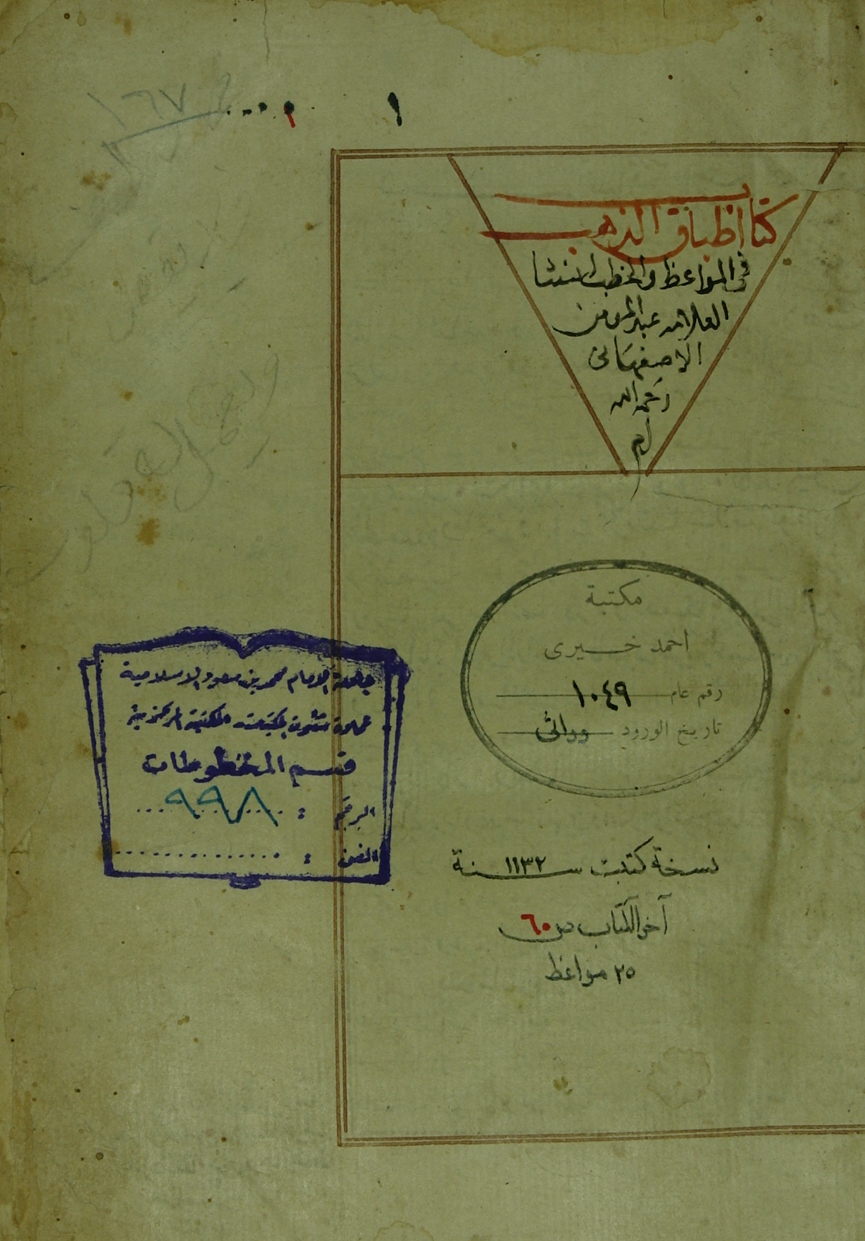 ١
١٦٧
كتاب اطباق الذهب
في المواعظ والخطب انشا
العلامه عبد المومن
الاصفهانى
رحمه الله
مكتبة
احمد خيرى
رقم عام ١٠٤٩
تاريخ الورود وراثى
جامعة الامام محمد بن سعود الاسلامية
عمادة شئون المكتبات المكتبة المركزية
قسم المخطوطات
الرقم : ٩٩٨
الفن :
نسخة كتبت سنة ١١٣٢
آخر الكتاب ص ٦٠
٢٥ مواعظ